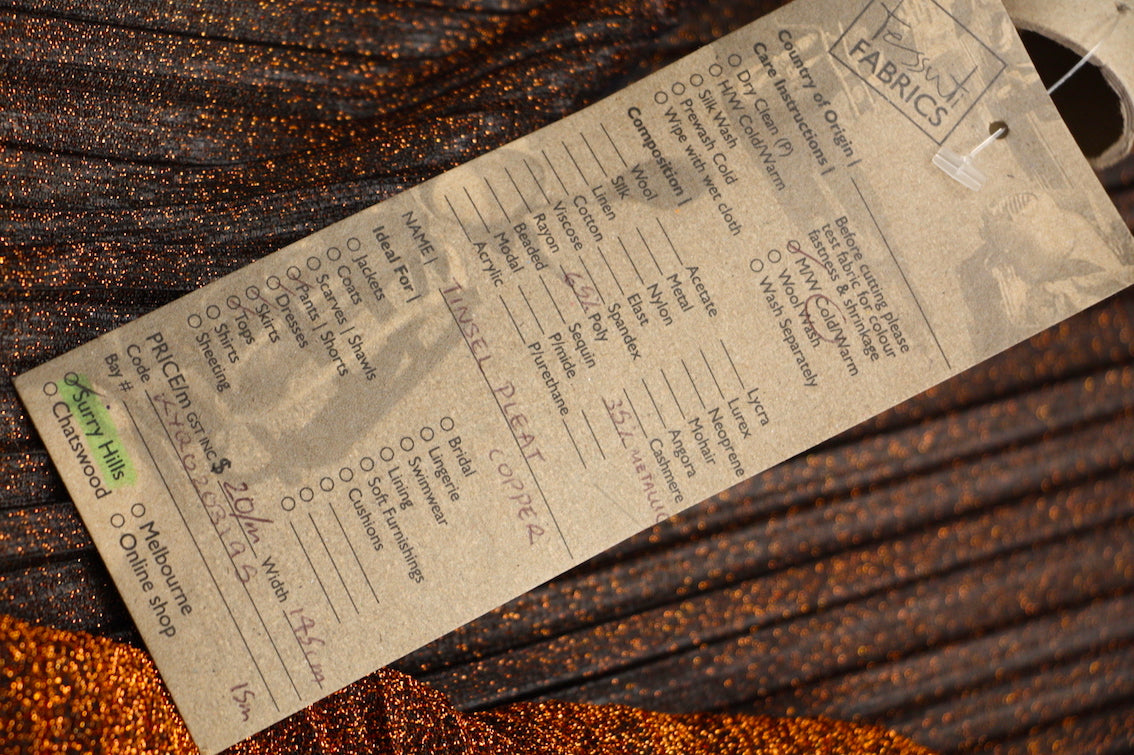 tessuti
FABRICS
Country of Origin |
Care Instructions |
Dry Clean (P)
H/W Cold/Warm
Silk Wash
Prewash Cold
Wipe with wer cloth
Before cutting please
test fabric for colour
fastness & shrinkage
M/W Cold/Warm
Wool Wash
Wash Separately
Composition |
Wool
Silk
Linen
Cotton
Viscose
Rayon
Beaded
Modal
Acrylic
Acetate
Metal
Nylon
Elast
Spandex
65% Poly
Sequin
P/mide
P/urethane
Lycra
Lurex
Neoprene
Mohair
Angora
Cashmere
35% METALLIC
NAME | TINSEL PLEAT COPPER
Ideal For |
Jackets
Coats
Scarves | Shawls
Pants | Shorts
Dresses
Skirts
Tops
Shirts
Sheeting
Bridal
Lingerie
Swimwear
Lining
Soft Furnishings
Cushions
PRICE/m GST INC $ 20/m Width 145cm
Code
Bay # 15m
Surry Hills
Chatswood
Melbourne
Online shop